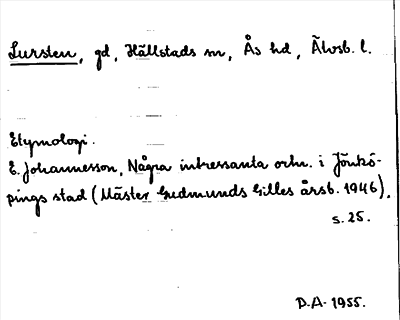 Lursten, gd, Hällstads sn, Ås hd, Älvsb. l.
Etymologi.
E. Johannesson, Några intressanta ortn. i Jönkö-
pings stad (Mäster Gudmunds Gilles årsb. 1946),
s. 25.
D.A. 1955.